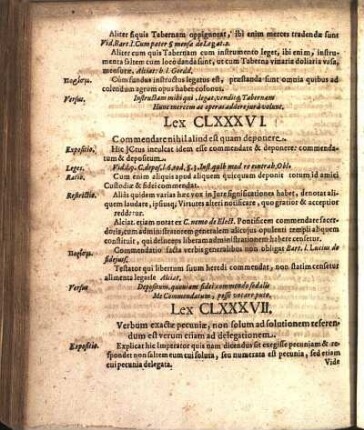 Aliter si quis Tabernam oppignerat, ibi enim merces tradendæ sunt
Vid. Bart. l. Cum pater § mensæ de Legat. 2.
Aliter cum quis Tabernam cum instrumento leget, ibi enim, instru-
menta saltem cum loco dando sunt, ut cum Taberna vinaria doliaria vasa,
mensuræ. Alciat: h. l. Goedd.
Cum fundus instructus legatus est, præstanda sunt omnia quibus ad
colendum agrum opus habet colonus.
Versus. Instructam mihi qui legat, vendit Tabernam
Hunc mercem ac operas addere jura volunt.
Lex CLXXXVI.
Commendare nihil aliud est quam deponere.
Expositio. Hic JCtus innuit idem esse commendate & deponere: commenda-
tum & depositum.
Leges.
Ratio. Cum enim aliquis apud aliquem quicquam deponit totum id amici
Custodiæ & fidei commendat.
Restrictio. Aliàs quidem varias hæc vox in Jure significationes habet, denotat ali-
quem laudare, ipsusq; Virtutes alteri notificare, quo gratior & acceptior
reddatur.
Alciat. etiam notat ex C. nemo de Elect. Pontificem commendare sacer-
doria, cum administratorem generalem alicujus opulenti templi aliquem
constituit, qui delictores liberam administrationem habere censetur.
Commendatio facta verbis generalibus non obligat Bart. l. Lucius de
fidejuss.
Testator qui libertum suum heredi commendat, non statim censetur
alimenta legasse Alciat.
Versus Depositum, quoniam fidei commendo sodalis
Me Commendatum, posse notare puto.
Lex CLXXXVII.
Verbum exactæ pecuniæ, non solum ad solutionem referen-
dum est verum etiam ad delegationem.
Expositio. Explicat hic Imperator quis nam dicendus sit exegisse pecuniam & re-
spondet non saltem eum cui soluta, seu numerata est pecunia, sed etiam
cui pecunia delegata.
Vide